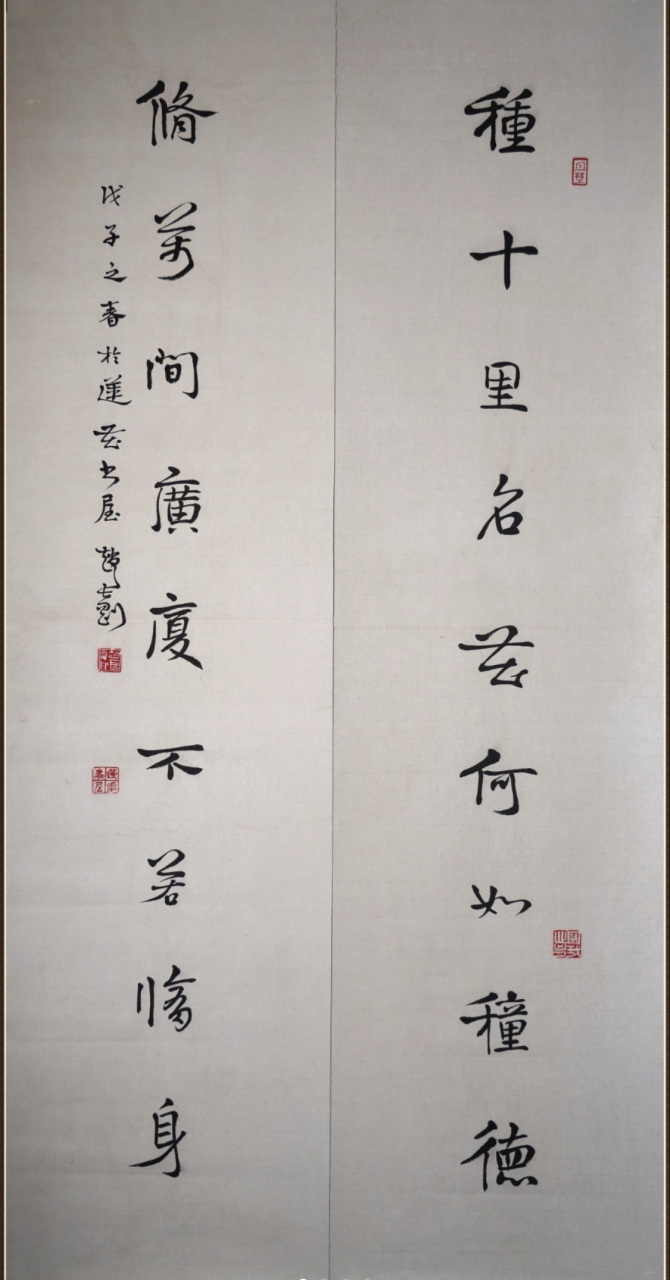 種十里名花何如穜德
脩萬間廣廈不若脩身
戊子之春於蓮花書屋 趙